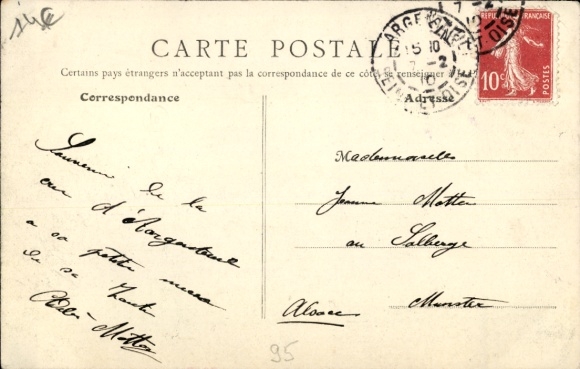 14€
CARTE POSTALE
Certains pays étrangers n'acceptant pas la correspondance de ce côté, se renseigner à la
Correspondance
Adresse
RÉPUBLIQUE FRANÇAISE
10c
POSTES
ARGENTEUIL
15 10
7 -2
10
SEINE ET OISE
7 -2
10
ET OISE
Souvenir de la
d'Argenteuil
a sa petite
de sa
Mademoiselle
Jeanne
au
Alsace Munster
95